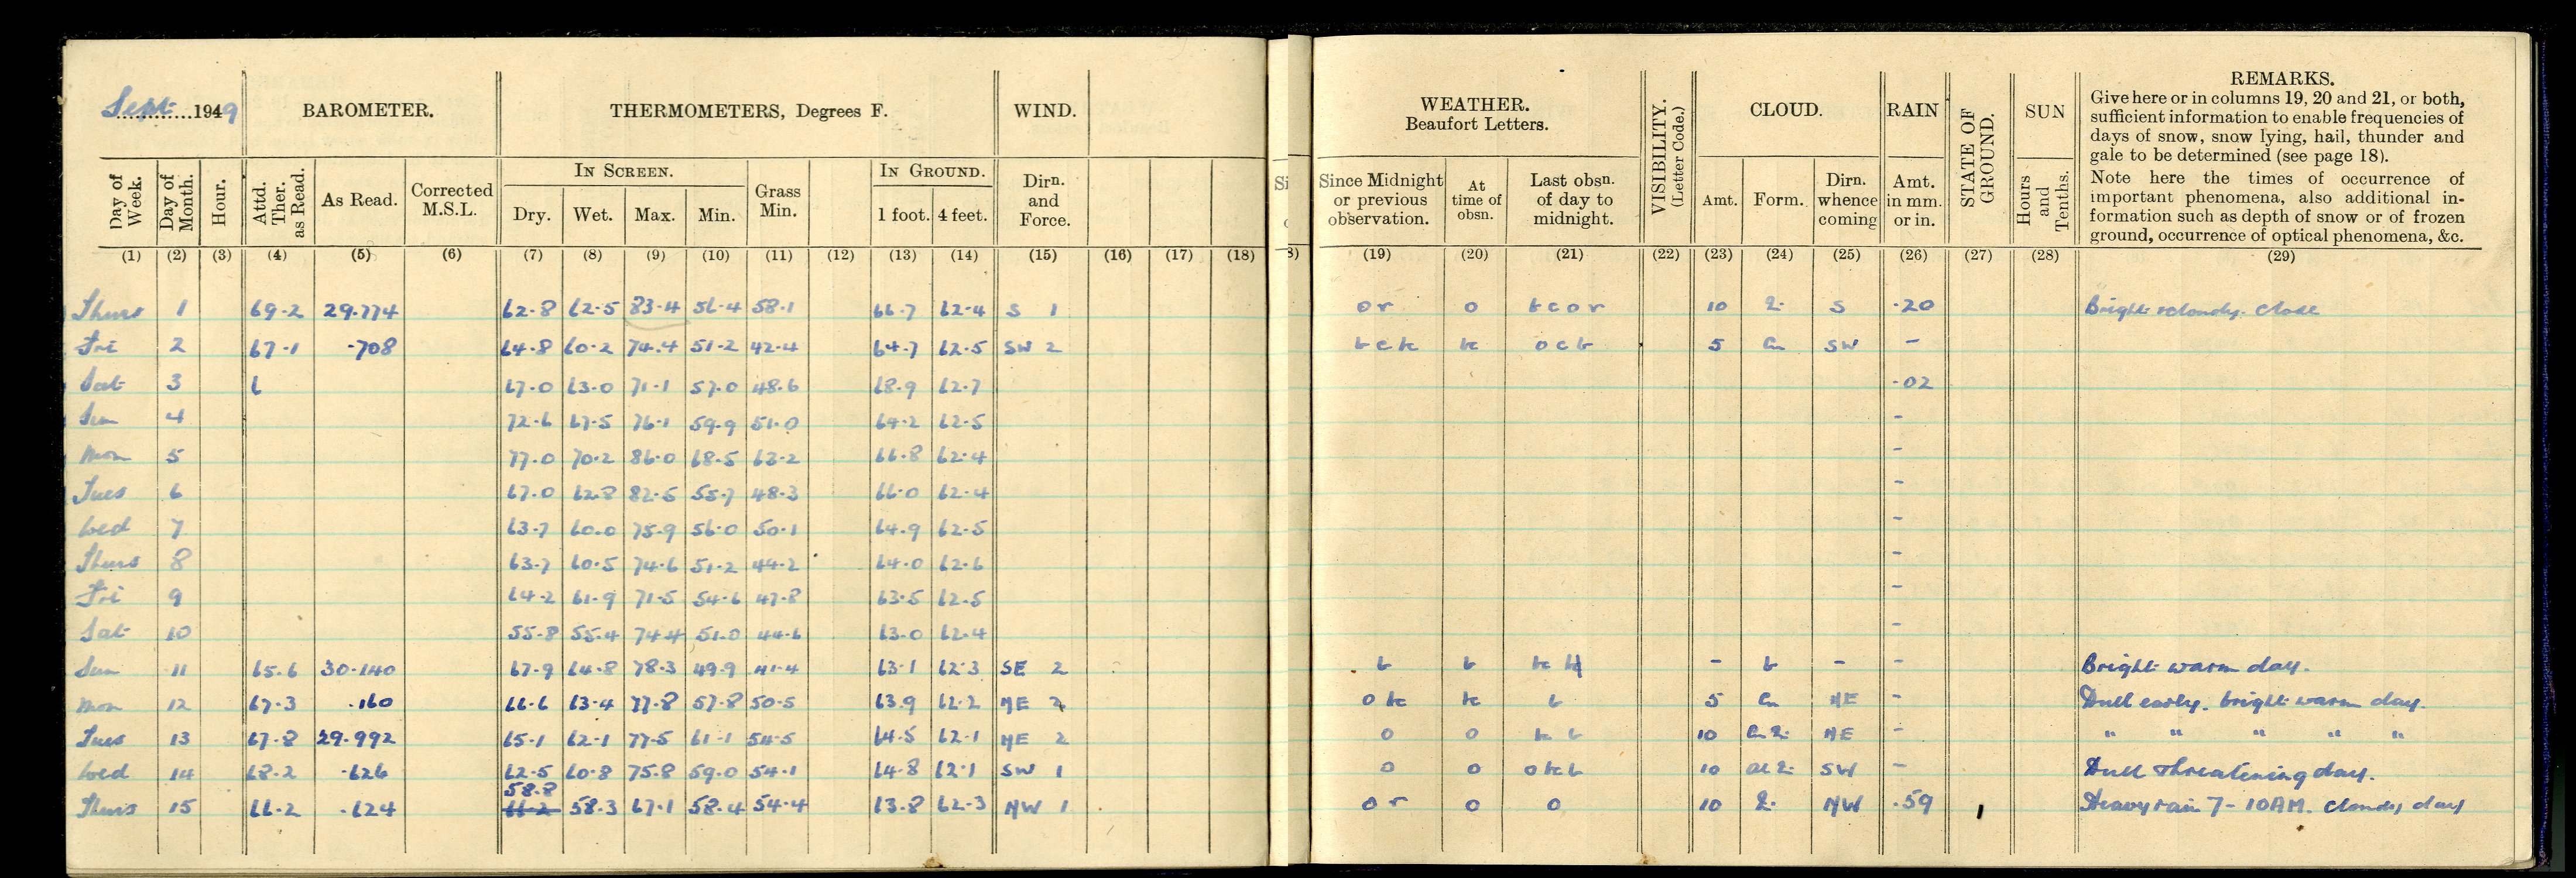 Sept 1949 BAROMETER. THERMOMETERS, Degrees F. WIND. WEATHER. Beaufort Letters. VISIBILITY. (Letter Code.) CLOUD. RAIN STATE OF GROUND. SUN REMARKS.
Give here or in columns 19, 20 and 21, or both,
sufficient information to enable frequencies of
days of snow, snow lying, hail, thunder and
gale to be determined (see page 18).
Note here the times of occurrence of
important phenomena, also additional in-
formation such as depth of snow or of frozen
ground, occurrence of optical phenomena, &c.
Day of Week. Day of Month. Hour. Attd. Ther. as Read. As Read. Corrected M.S.L. IN SCREEN. Dry. Wet. Max. Min. Grass Min. IN GROUND. 1 foot. 4 feet. Dirn. and Force. Since Midnight or previous observation. At time of obsn. Last obsn. of day to midnight. Amt. Form. Dirn. whence coming Amt. in mm. or in. Hours and Tenths.
(1) (2) (3) (4) (5) (6) (7) (8) (9) (10) (11) (12) (13) (14) (15) (16) (17) (18) (19) (20) (21) (22) (23) (24) (25) (26) (27) (28) (29)
Thurs 1 69.2 29.774 62.8 62.5 83.4 56.4 58.1 66.7 62.4 S 1 o r o b c o r 10 S .20 Bright & cloudy. Close
Fri 2 67.1 .708 64.8 60.2 74.4 51.2 42.4 64.7 62.5 SW 2 b c bc o c b 5 Cu SW -
Sat 3 6 67.0 63.0 71.1 57.0 48.6 68.9 62.7 .02
Sun 4 72.6 67.5 76.1 59.9 51.0 64.2 62.5 -
Mon 5 77.0 70.2 86.0 68.5 63.2 66.8 62.4 -
Tues 6 67.0 62.8 82.5 55.7 48.3 66.0 62.4 -
Wed 7 63.7 60.0 75.9 56.0 50.1 64.9 62.5 -
Thurs 8 63.7 60.5 74.6 51.2 44.2 64.0 62.6 -
Fri 9 64.2 61.9 71.5 54.6 47.8 63.5 62.5 -
Sat 10 55.8 55.4 74.4 51.0 44.6 63.0 62.4 -
Sun 11 65.6 30.140 67.9 64.8 78.3 49.9 41.4 63.1 62.3 SE 2 b b bc - b - - Bright warm day.
Mon 12 67.3 .160 66.6 63.4 77.8 57.8 50.5 63.9 62.2 NE 2 o bc bc b 5 Cu NE - Dull early. bright warm day.
Tues 13 67.8 29.992 65.1 62.1 77.5 61.1 54.5 64.5 62.1 NE 2 o o bc b 10 NE - " " " " "
Wed 14 68.2 .626 62.5 60.8 75.8 59.0 54.1 64.8 62.1 SW 1 o o o bc b 10 SW - Dull threatening day.
58.8
Thurs 15 66.2 .624 66.2 58.3 67.1 58.4 54.4 63.8 62.3 NW 1 o r o o 10 NW .59 1 Heavy rain 7-10AM. Cloudy day